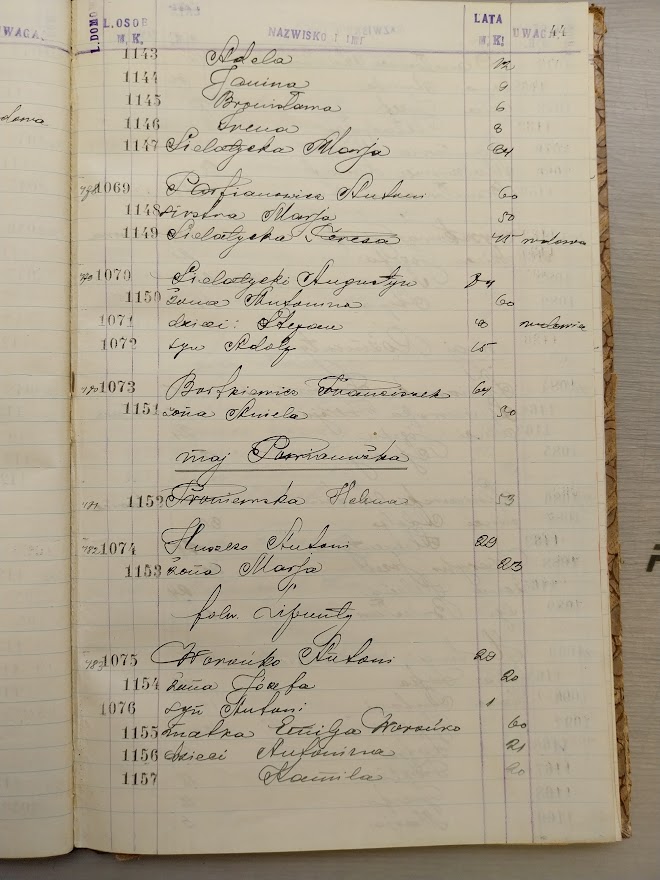 WAGA
dowa
L. DOMO L. OSOB M. K. NAZWISKO I IMI LATA M. K. UWAGA 44
1143 Adela 12
1144 Janina 9
1145 Bronisława 6
1146 Irena 8
1147 Sielatycka Marja 64
1069 Parfianowicz Antoni 60
1148 siostra Marja 50
1149 Sielatycka Teresa 45 wdowa
1070 Sielatycki Augustyn 74
1150 żona Antonina 60
1071 dzieci: Stefan wdowiec
1072 syn Adolf 15
1073 Bortkiewicz Franciszek 64
1151 żona Aniela 50
maj
1152 Helena 53
182 1074 Hluszko Antoni 29
1153 żona Marja 23
folw. Lipunty
183 1075 Worońko Antoni 29
1154 żona Józefa 20
1076 syn Antoni 1
1155 matka Emilja Worońko 60
1156 dzieci Antonina 21
1157 Kamila 20